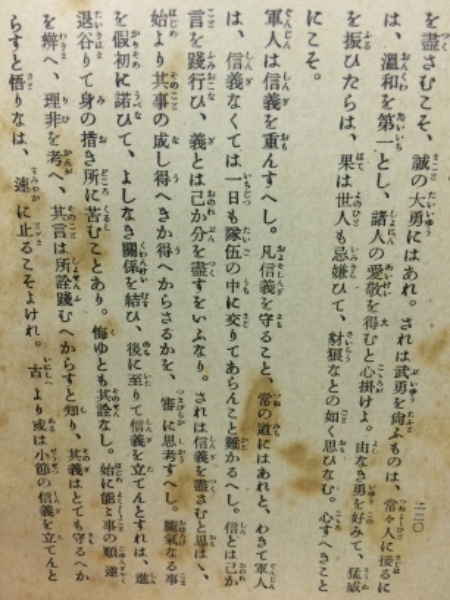 二二〇
を盡さむこそ、誠の大勇にはあれ。されは武勇を尙ふものは、常々人に接るに
は、溫和を第一とし、諸人の愛敬を得むと心掛けよ。由なき勇を好みて、猛威
を振ひたらは、果は世人も忌嫌ひて、豺狼なとの如く思ひなむ。心すへきこと
にこそ。
軍人は信義を重んすへし。凡信義を守ること、常の道にはあれと、わきて軍人
は、信義なくては一日も隊伍の中に交りてあらんこと難かるへし。信とは己か
言を踐行ひ、義とは己か分を盡すをいふなり。されは信義を盡さむと思はゝ、
始より其事の成し得へきか得へからさるかを、審に思考すへし。朧氣なる事
を假初に諾ひて、よしなき關係を結ひ、後に至りて信義を立てんとすれは、進
退谷りて身の措き所に苦むことあり。悔ゆとも其詮なし。始に能々事の順逆
を辨へ、理非を考へ、其言は所詮踐むへからすと知り、其義はとても守るへか
らすと悟りなは、速に止るこそよけれ。古より或は小節の信義を立てんと